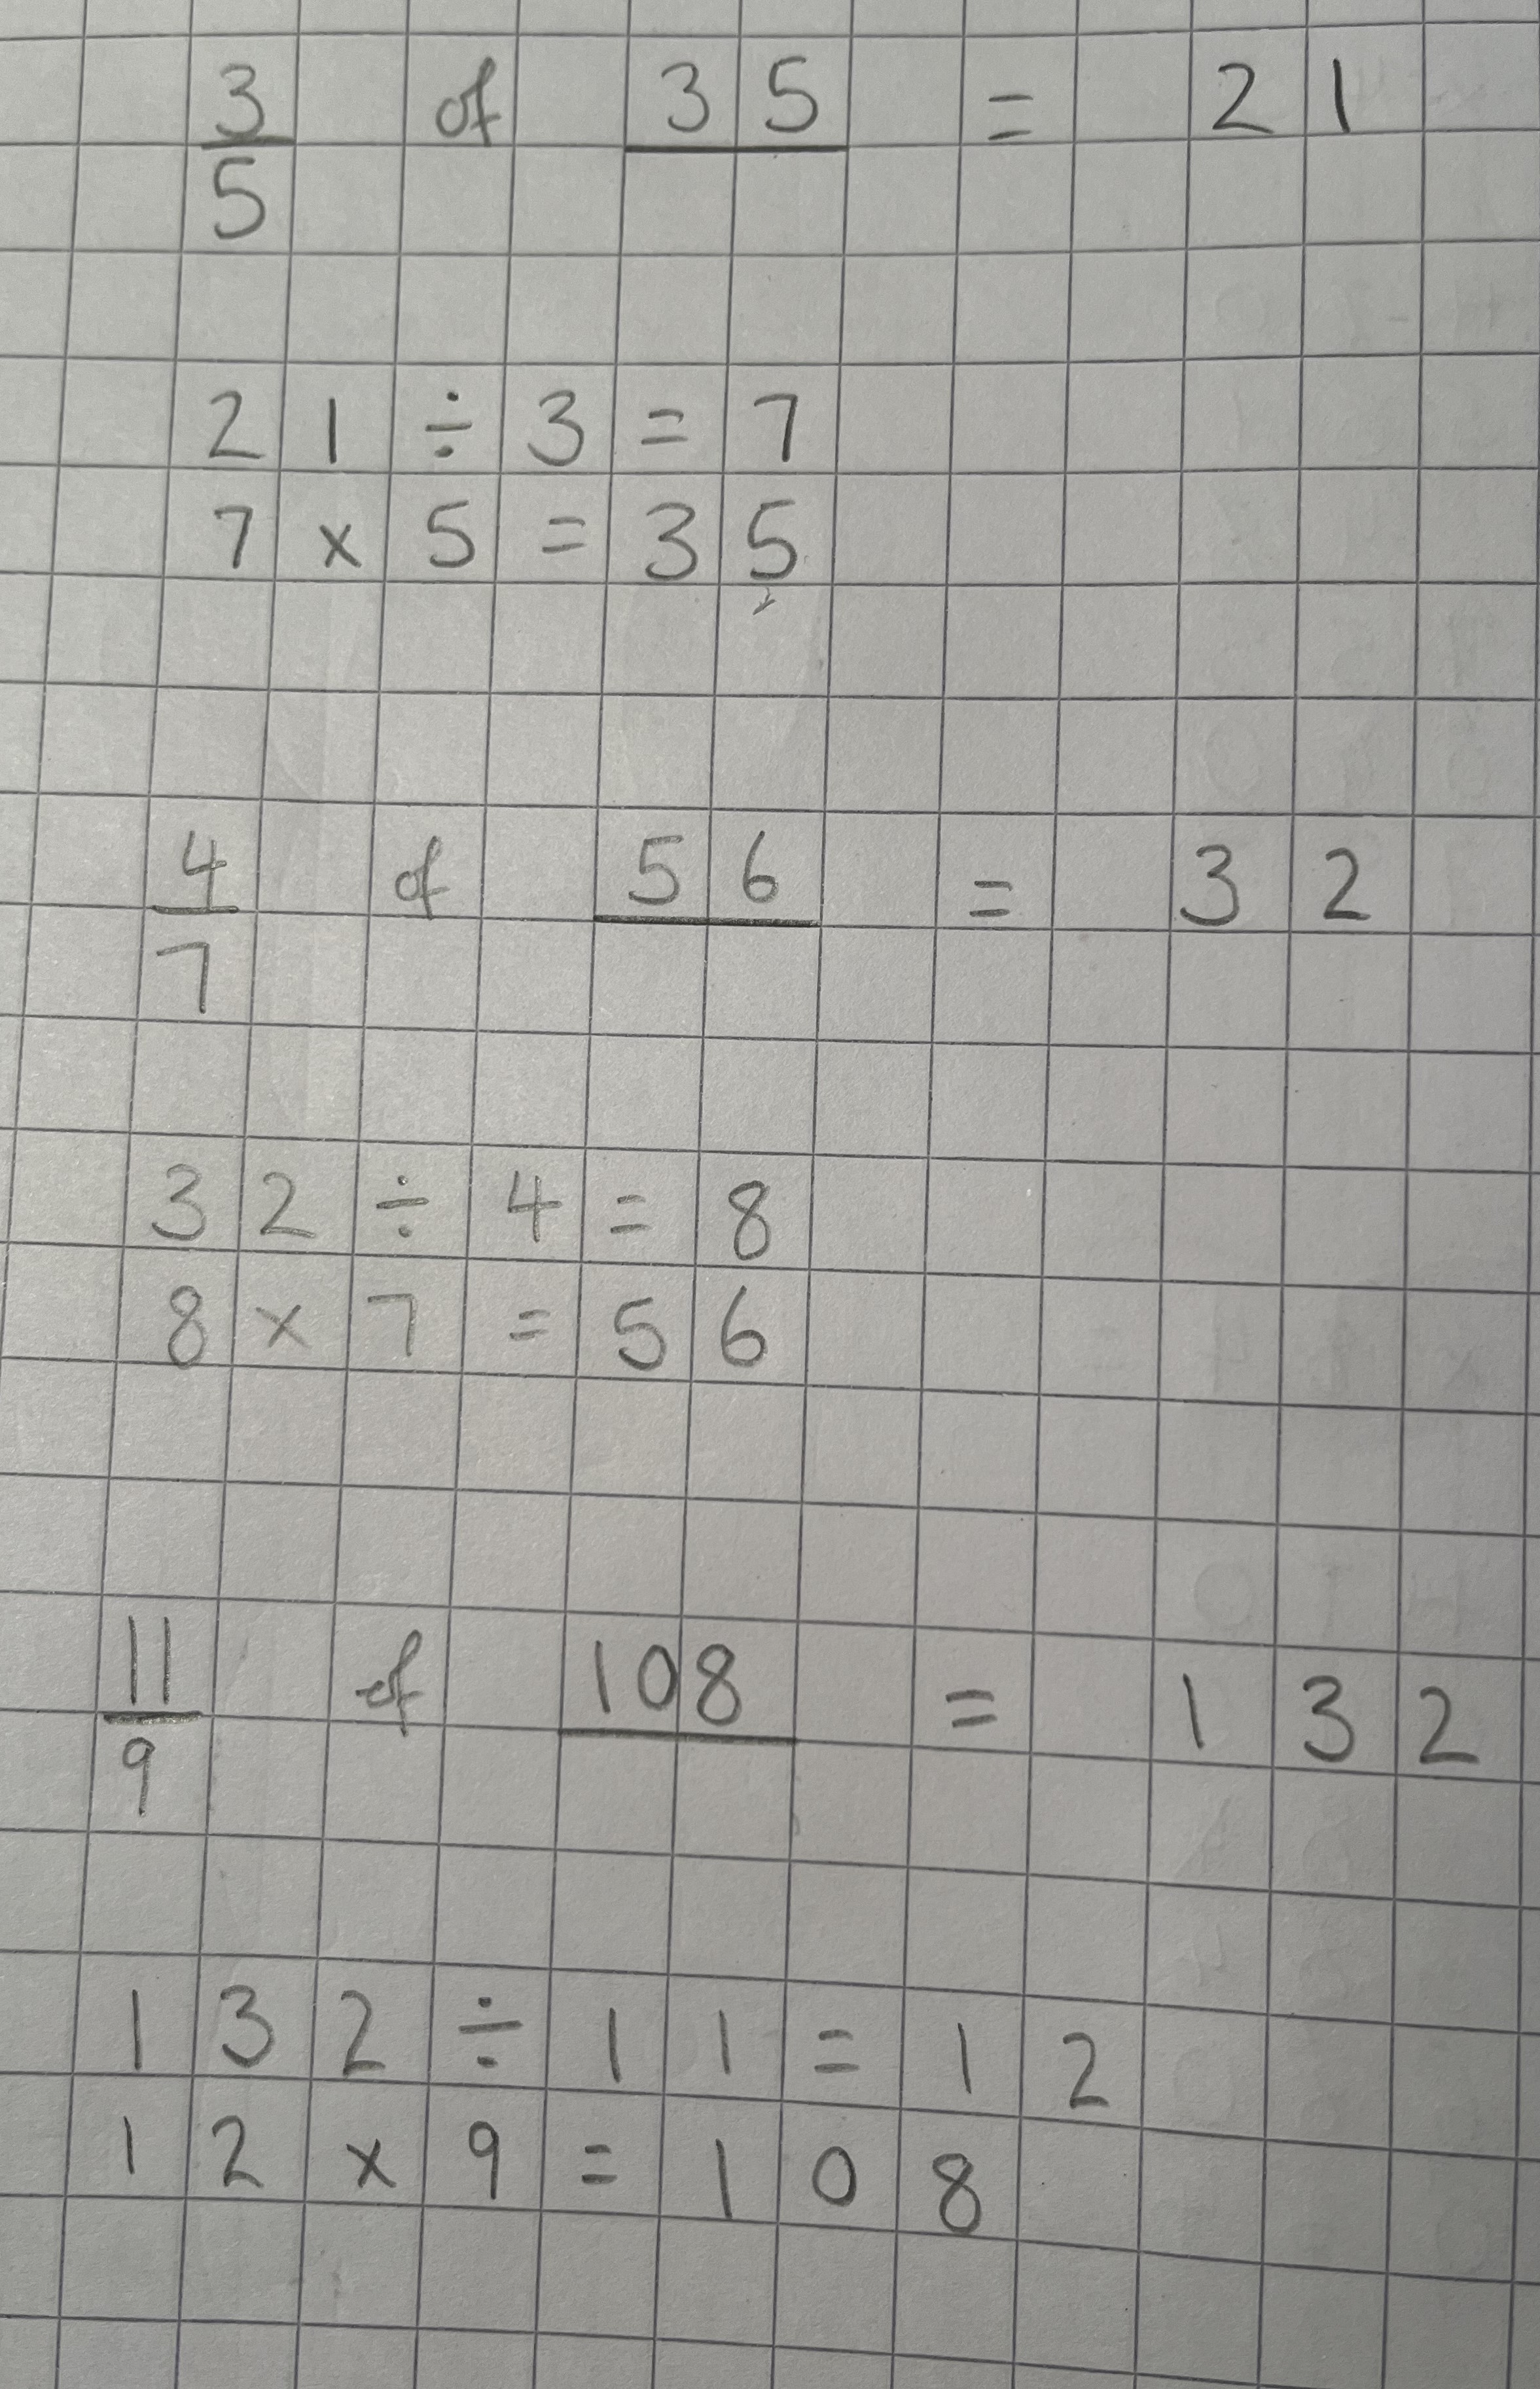 3/5 of 35 = 21
21 ÷ 3 = 7
7 × 5 = 35
4/7 of 56 = 32
32 ÷ 4 = 8
8 × 7 = 56
11/9 of 108 = 132
132 ÷ 11 = 12
12 × 9 = 108